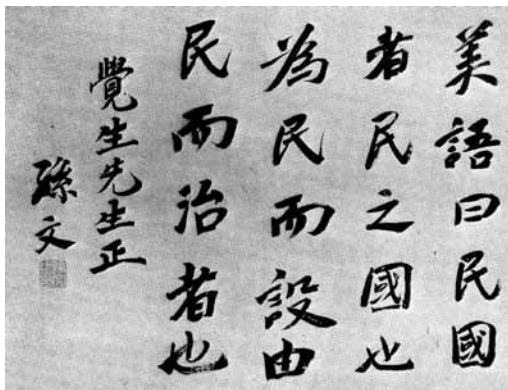 美語曰民國
者民之國也
為民而設由
民而治者也
覺生先生正
孫文